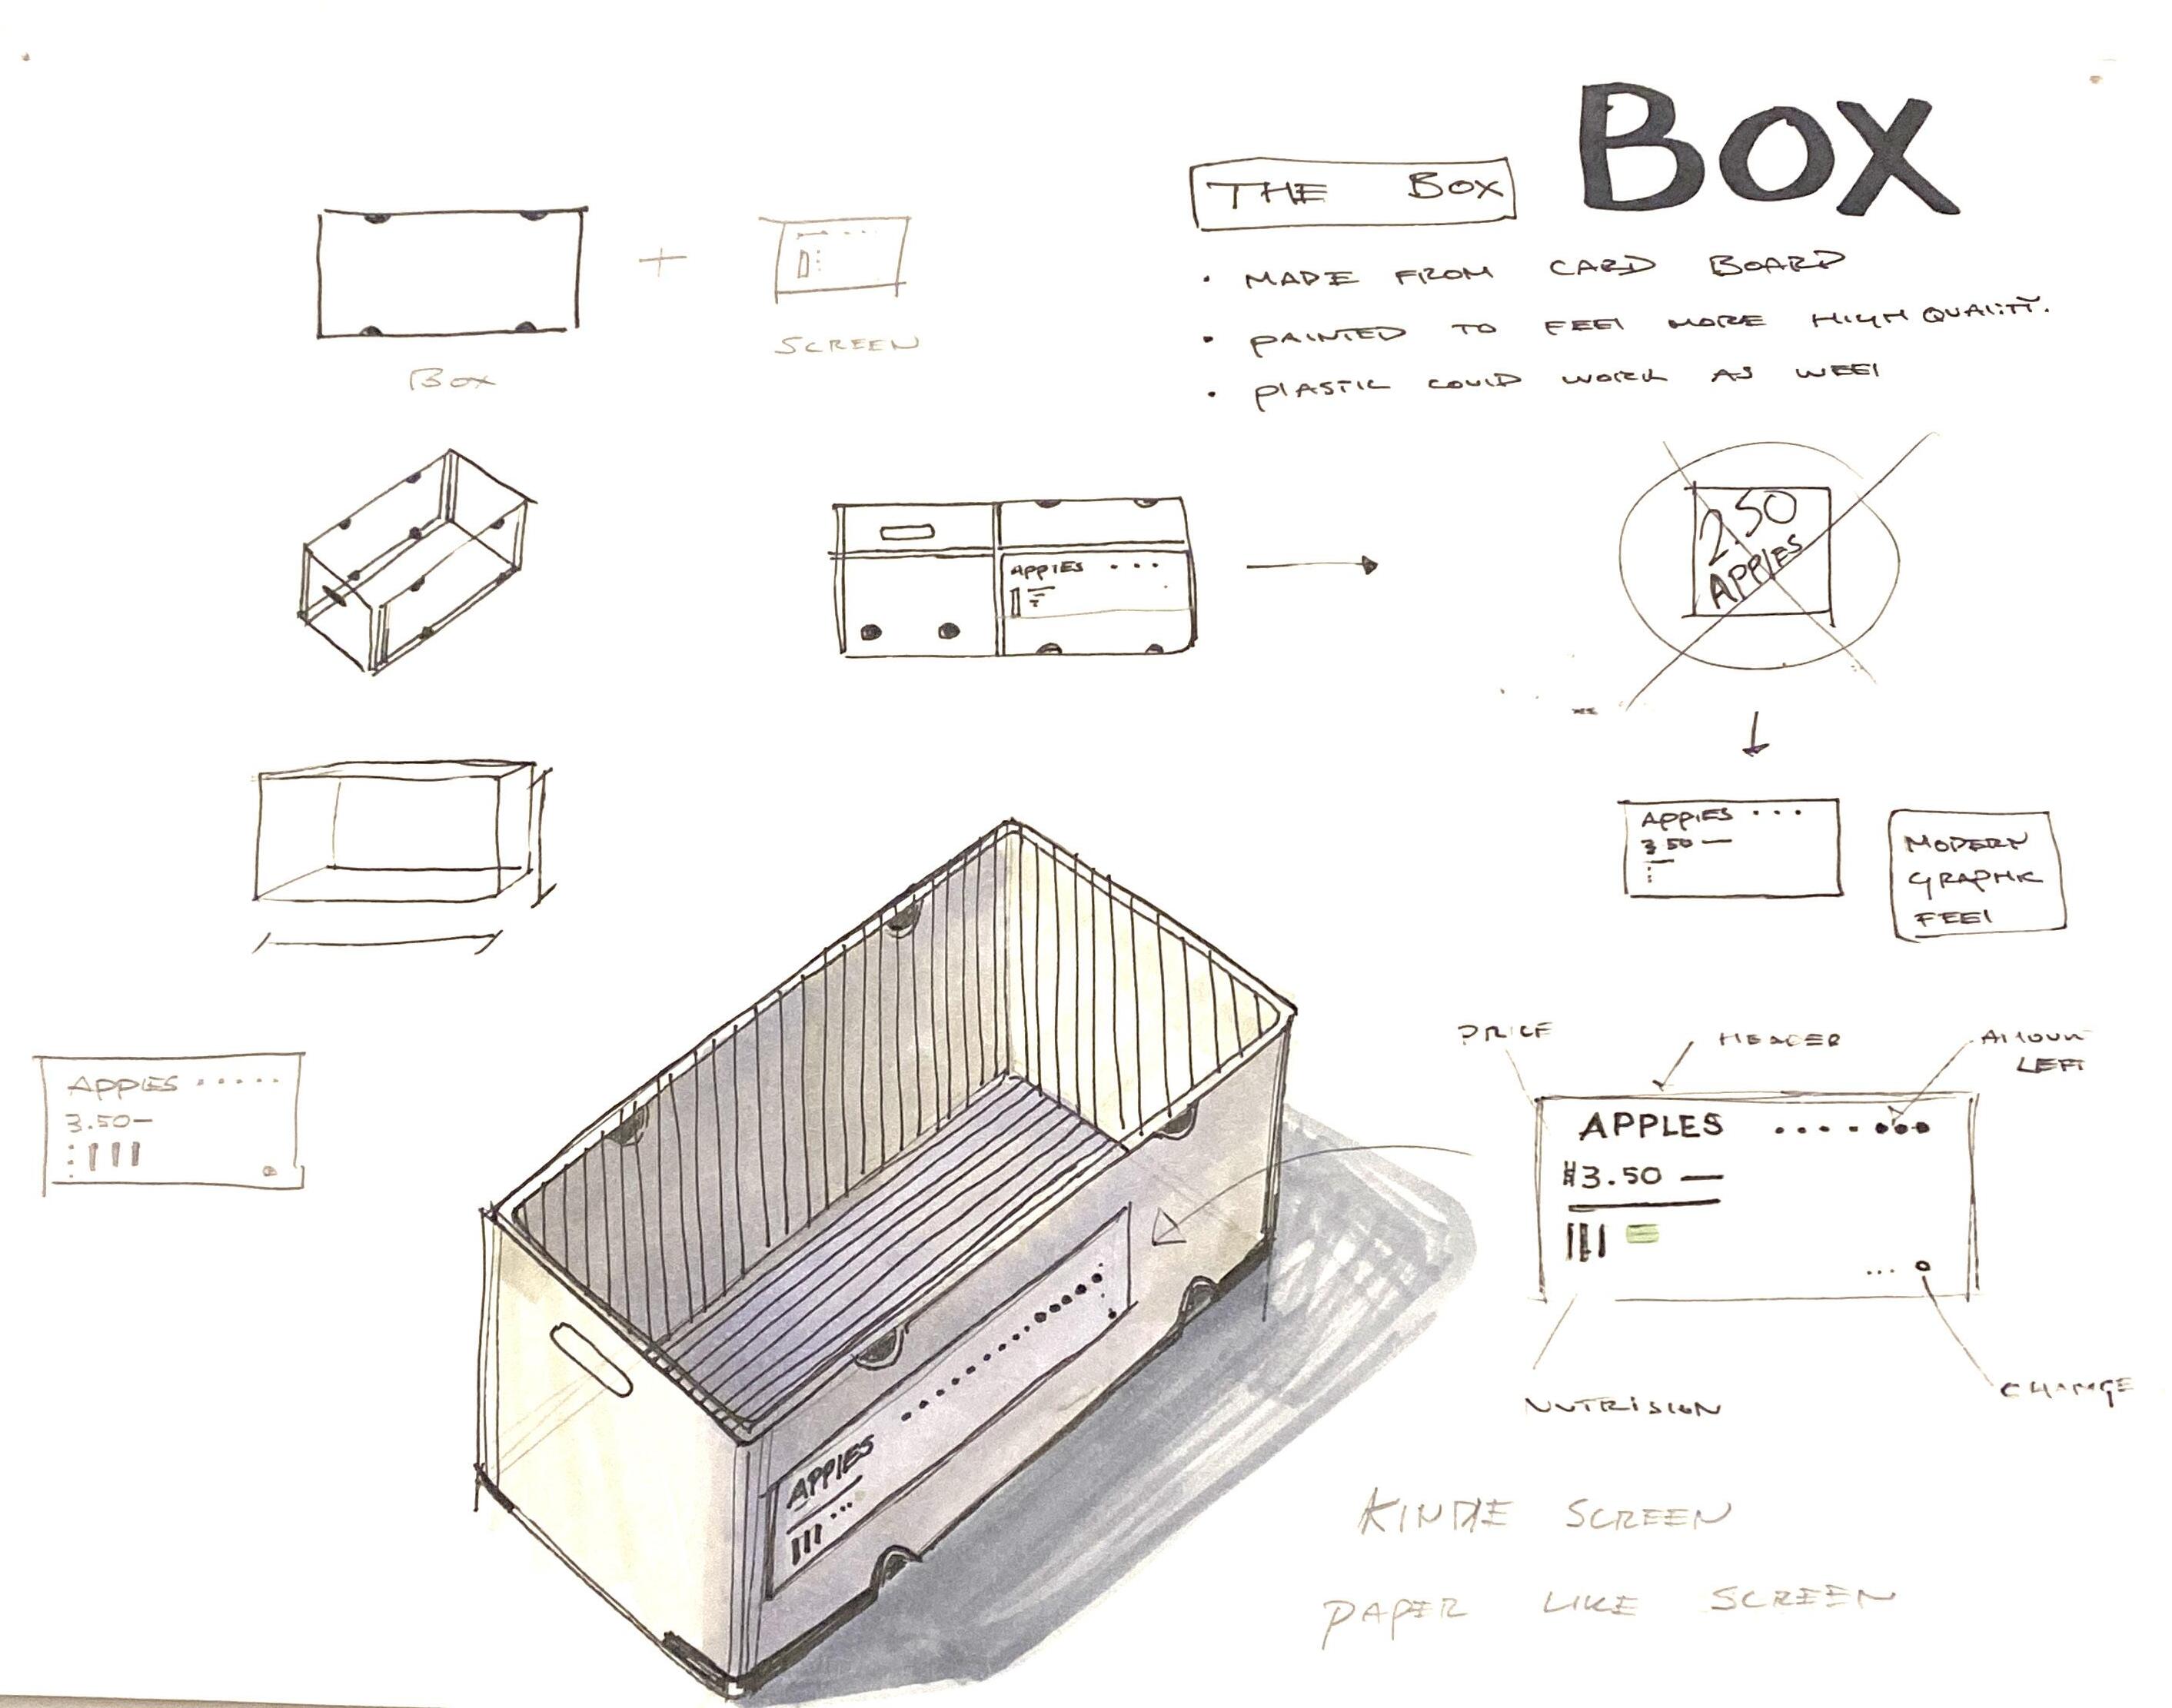 BOX
THE BOX
• MADE FROM CARD BOARD
• PAINTED TO FEEL MORE HIGH QUALITY.
• PLASTIC COULD WORK AS WELL
BOX
+
SCREEN
APPLES • • •
2.50
APPLES
APPLES • • •
3.50 —
MODERN
GRAPHIC
FEEL
APPLES • • • • •
3.50—
PRICE
HEADER
AMOUNT
LEFT
APPLES • • • • • • •
$3.50 —
NUTRISION
CHANGE
APPLES
KINDLE SCREEN
PAPER LIKE SCREEN